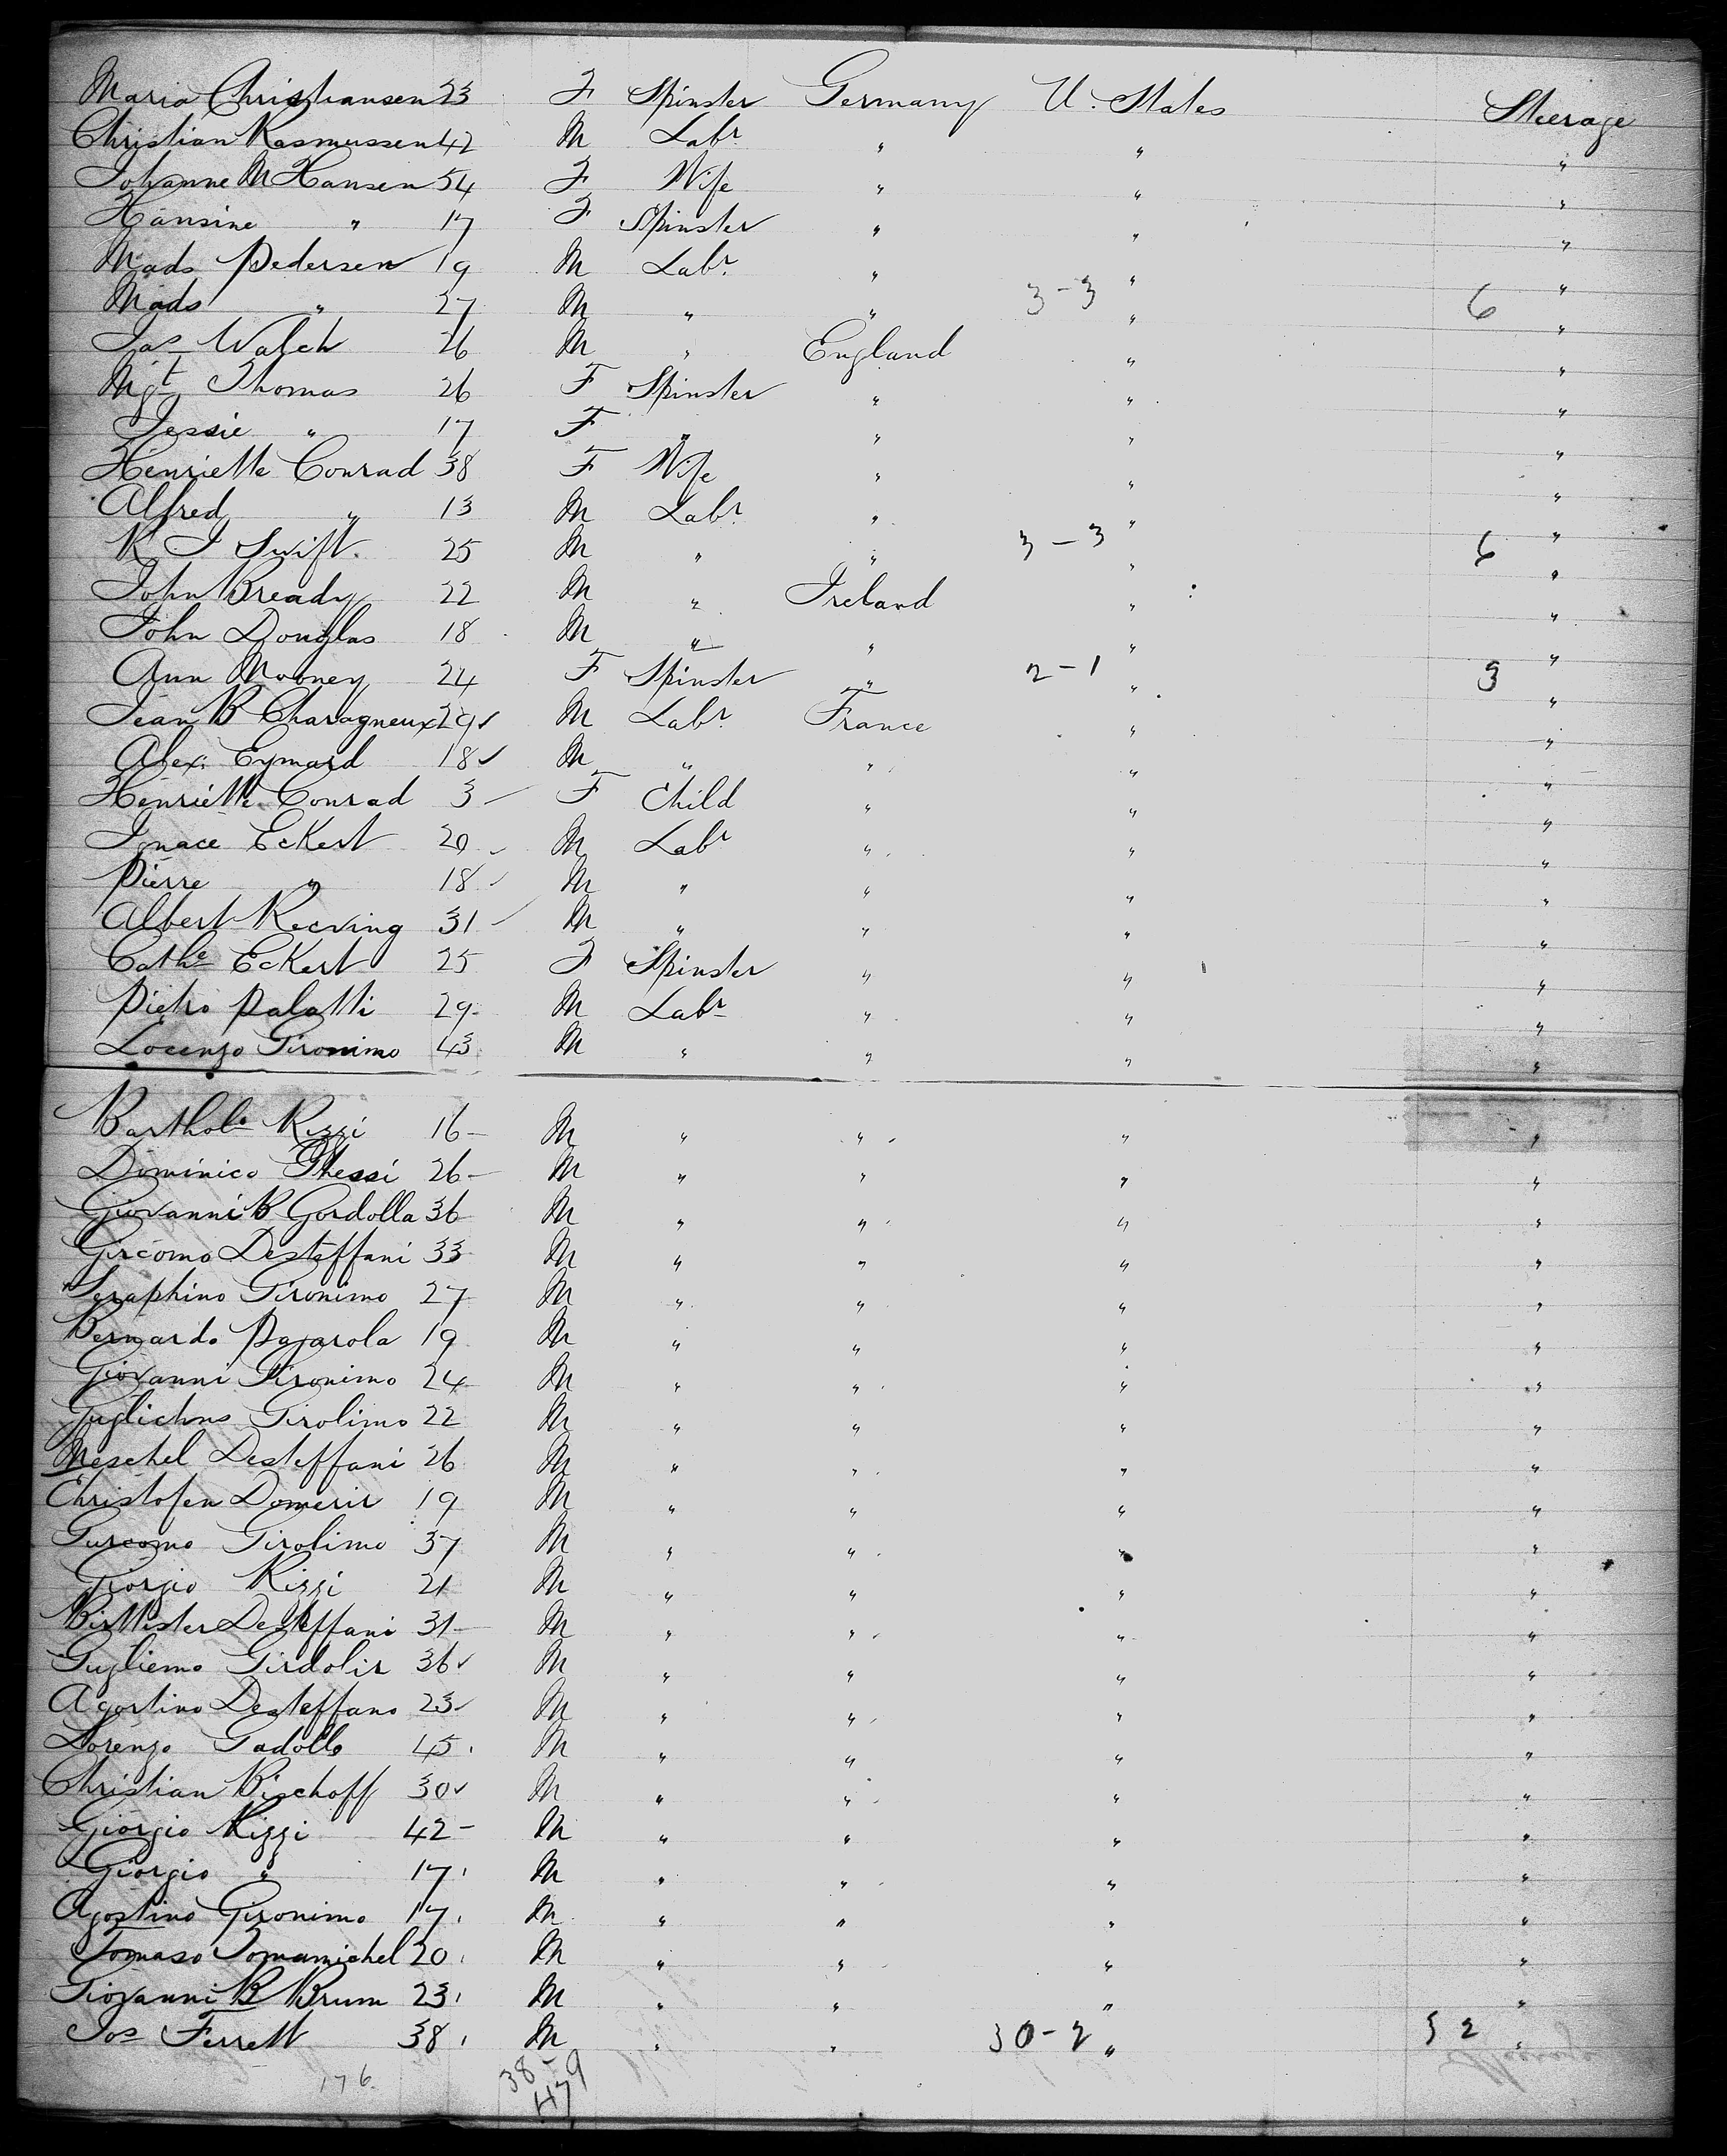 Maria Christiansen 23 F Spinster Germany U. States Steerage
Christian Rasmussen 42 M Labr " " "
Johanne M Hansen 54 F Wife " " "
Hansine " 17 F Spinster " " "
Mads Pedersen 19 M Labr " " "
Mads " 27 M " " 3-3 " 6 "
Jas Walch 26 M " England " "
Mgt Thomas 26 F Spinster " " "
Jessie " 17 F " " " "
Henriette Conrad 38 F Wife " " "
Alfred " 13 M Labr " " "
K J Swift. 25 M " " 3-3 " 6 "
John Bready 22 M " Ireland " "
John Douglas 18 M " " " "
Ann Mooney 24 F Spinster " 2-1 " 3 "
Jean B Charagneux 29 M Labr France " "
Alex. Eymard 18 M " " " "
Henriette Conrad 3 F Child " " "
Ignace Eckert 20 M Labr " " "
Pierre " 18 M " " " "
Albert Recving 31 M " " " "
Cathe Eckert 25 F Spinster " " "
Pietro Palatti 29 M Labr " " "
Locenzo Gironimo 43 M " " " "
Barthole Rizzi 16 M " " " "
Dominico Ghessi 26 M " " " "
Giovanni B Gordolla 36 M " " " "
Gircomo Desteffani 33 M " " " "
Seraphino Gironimo 27 M " " " "
Bernardo Pajarola 19 M " " " "
Giovanni Gironimo 24 M " " " "
Guglichno Girolimo 22 M " " " "
Meschel Desteffani 26 M " " " "
Christofen Domerir 19 M " " " "
Gurcomo Girolimo 37 M " " " "
Giorgio Rizzi 21 M " " " "
Bittister Desteffani 31 M " " " "
Gugliemo Girdolir 36 M " " " "
Agostino Desteffano 23 M " " " "
Lorenzo Gadollo 45 M " " " "
Christian Bischoff 30 M " " " "
Giorgio Rizzi 42 M " " " "
Giorgio " 17 M " " " "
Agostino Gironimo 17 M " " " "
Tomaso Tomamichel 20 M " " " "
Giovanni B Brum 23 M " " " "
Jos Ferrett 38 M " " 30-2 " 32 "
176. 38-9
47